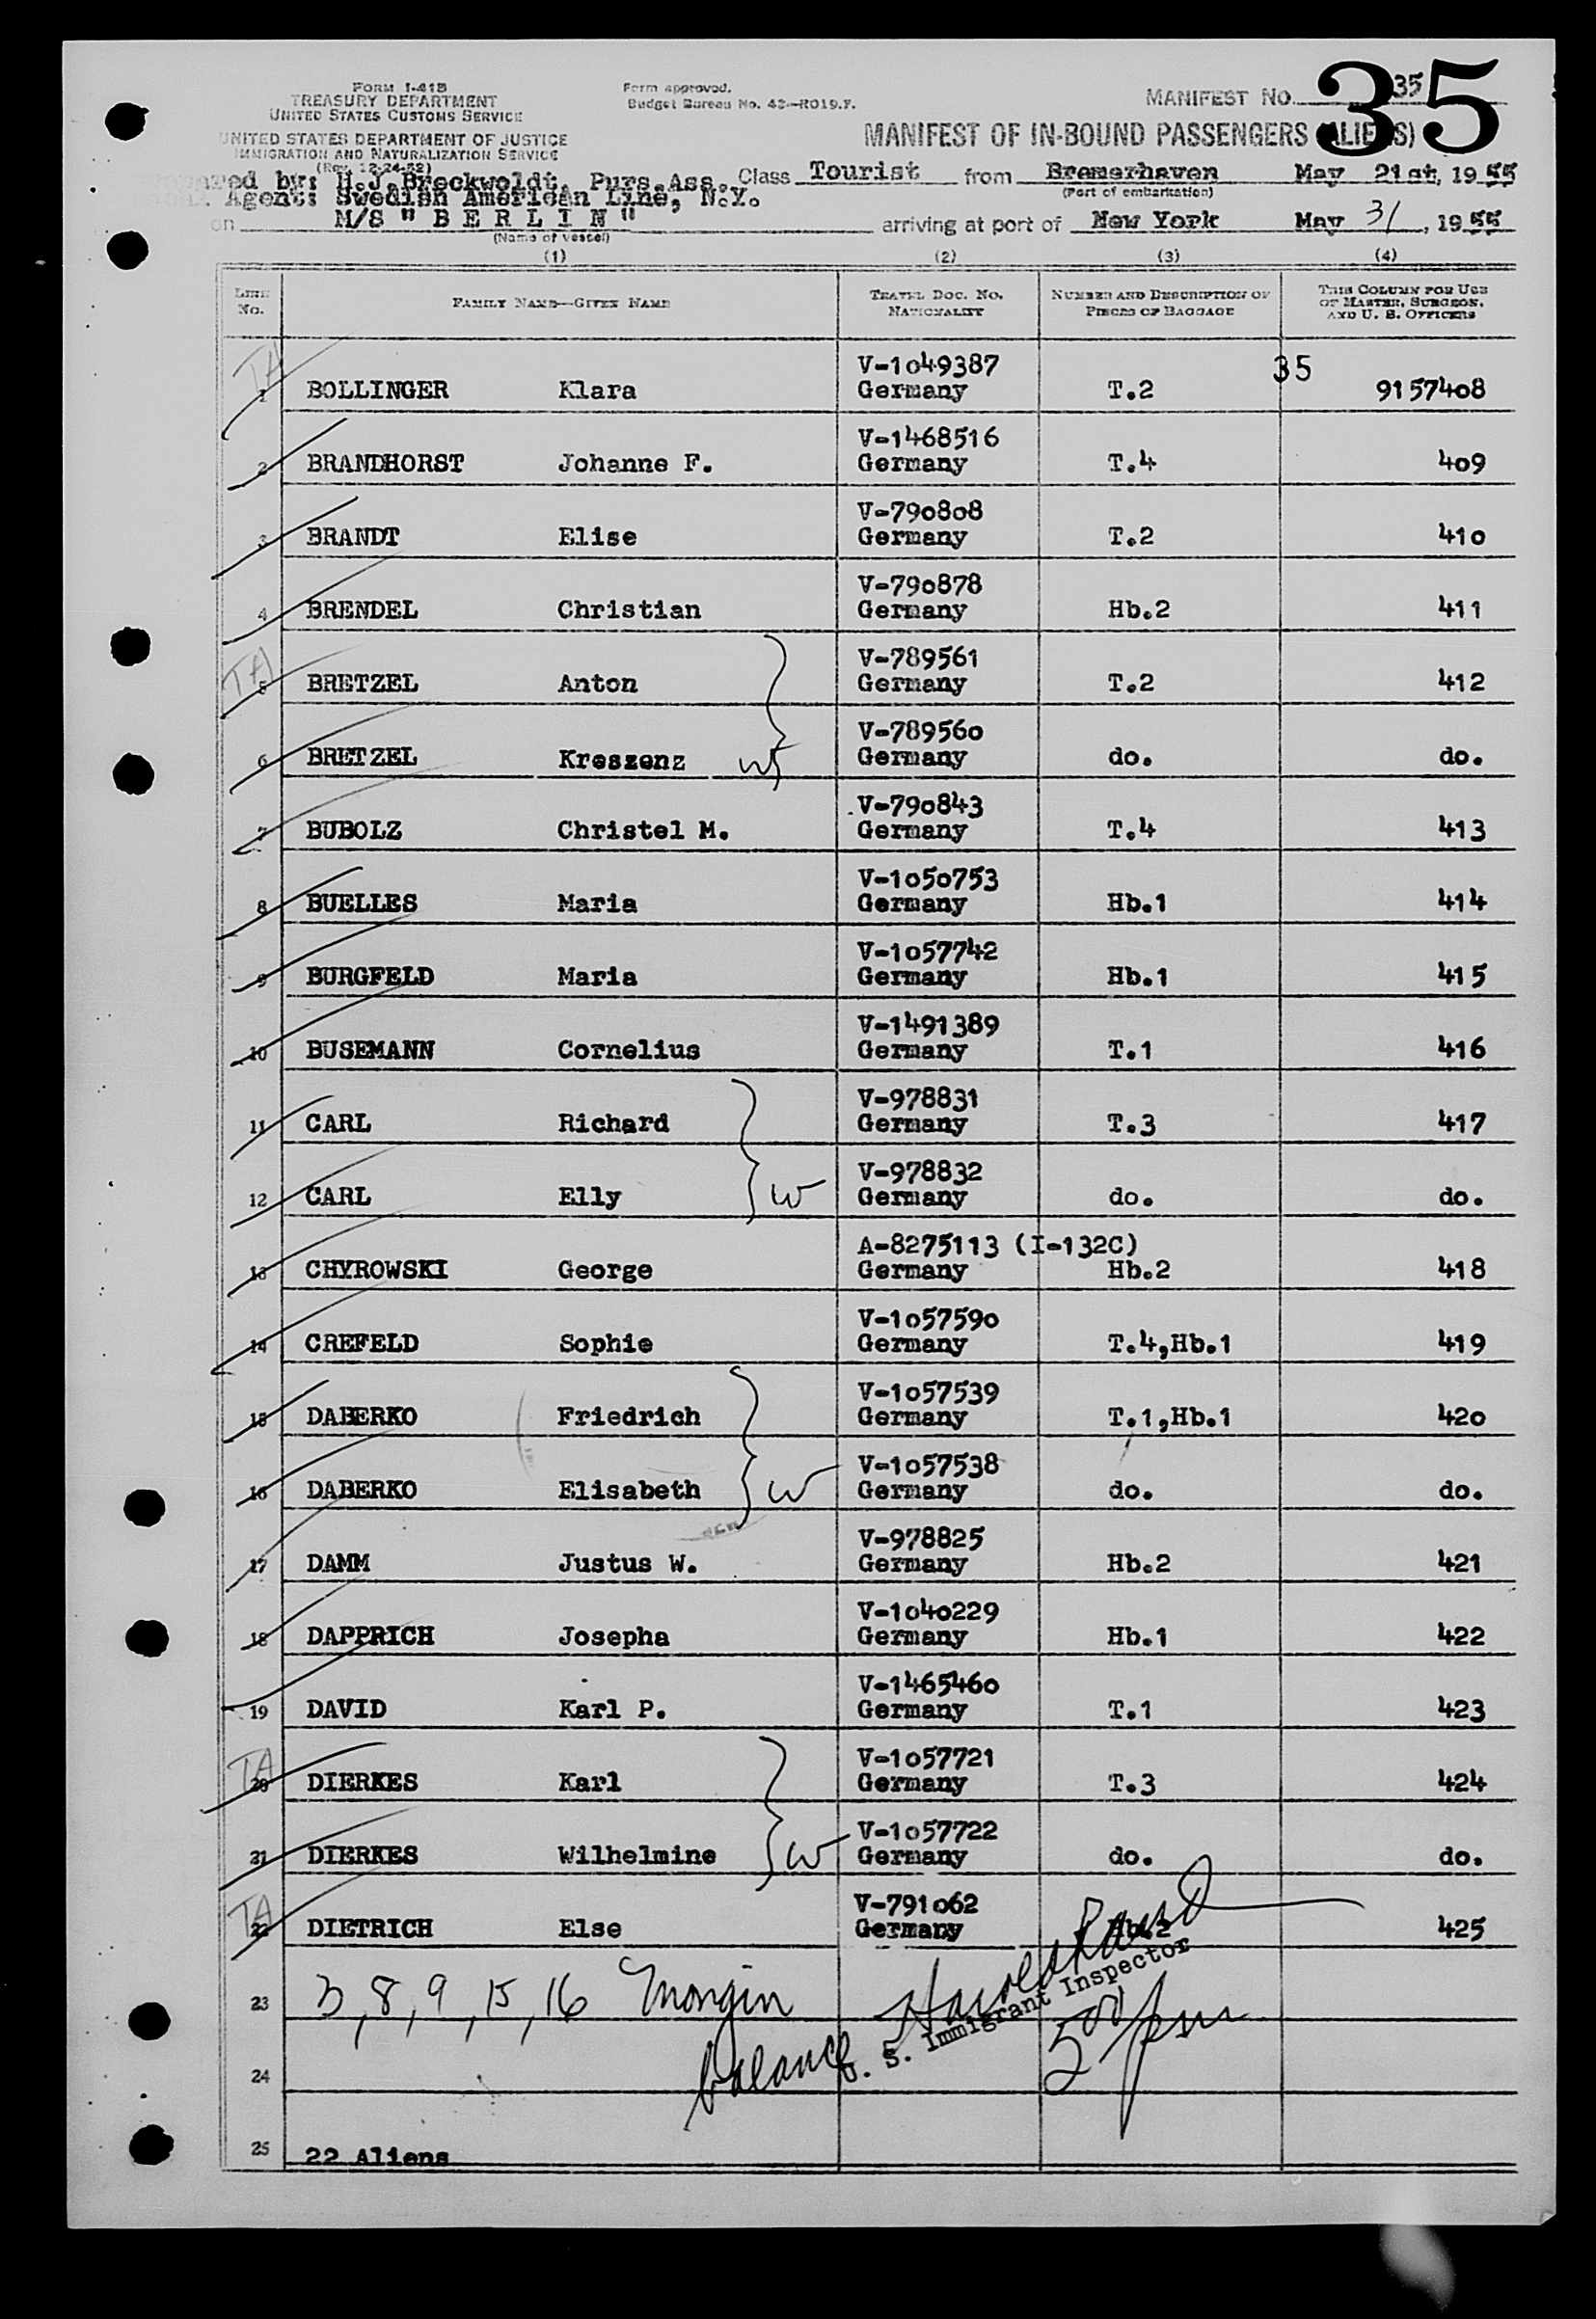 35
FORM I-41B
TREASURY DEPARTMENT
UNITED STATES CUSTOMS SERVICE
UNITED STATES DEPARTMENT OF JUSTICE
IMMIGRATION AND NATURALIZATION SERVICE
(Rev. 12-24-52)
Form approved.
Budget Bureau No. 43-R019.F.
MANIFEST NO. 35
MANIFEST OF IN-BOUND PASSENGERS (ALIENS)
by: H.J.Breckwoldt, Purs.Ass. Class Tourist from Bremerhaven May 21st, 1955
(Port of embarkation)
Agent: Swedish American Line, N.Y.
on M/S "BERLIN" arriving at port of New York May 31, 1955
(Name of vessel)
(1) (2) (3) (4)
LINE NO. FAMILY NAME—GIVEN NAME TRAVEL DOC. NO. NATIONALITY NUMBER AND DESCRIPTION OF PIECES OF BAGGAGE THIS COLUMN FOR USE OF MASTER, SURGEON, AND U. S. OFFICERS
TA V-1049387 35
1 BOLLINGER Klara Germany T.2 9157408
V-1468516
2 BRANDHORST Johanne F. Germany T.4 409
V-790808
3 BRANDT Elise Germany T.2 410
V-790878
4 BRENDEL Christian Germany Hb.2 411
TA V-789561
5 BRETZEL Anton Germany T.2 412
V-789560
6 BRETZEL Kreszenz W Germany do. do.
V-790843
7 BUBOLZ Christel M. Germany T.4 413
V-1050753
8 BUELLES Maria Germany Hb.1 414
V-1057742
9 BURGFELD Maria Germany Hb.1 415
V-1491389
10 BUSEMANN Cornelius Germany T.1 416
V-978831
11 CARL Richard Germany T.3 417
V-978832
12 CARL Elly W Germany do. do.
A-8275113 (I-132C)
13 CHYROWSKI George Germany Hb.2 418
V-1057590
14 CREFELD Sophie Germany T.4,Hb.1 419
V-1057539
15 DABERKO Friedrich Germany T.1,Hb.1 420
V-1057538
16 DABERKO Elisabeth W Germany do. do.
V-978825
17 DAMM Justus W. Germany Hb.2 421
V-1040229
18 DAPPRICH Josepha Germany Hb.1 422
V-1465460
19 DAVID Karl P. Germany T.1 423
TA V-1057721
20 DIERKES Karl Germany T.3 424
V-1057722
21 DIERKES Wilhelmine W Germany do. do.
TA V-791062
22 DIETRICH Else Germany Hb.2 425
23 3, 8, 9, 15, 16 Mongin
balance U. S. Immigrant Inspector
500 pm
24
25 22 Aliens